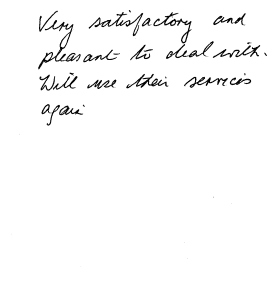 Very satisfactory and
pleasant to deal with.
Will use their services
again